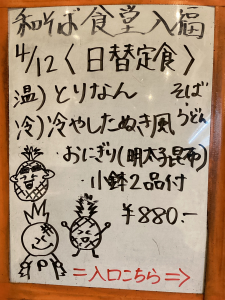 和そば食堂入福
4/12〈日替定食〉
温)とりなん そば
冷)冷やしたぬき風 うどん
・おにぎり(明太子昆布)
・小鉢2品付
¥880.-
=入口こちら⇒